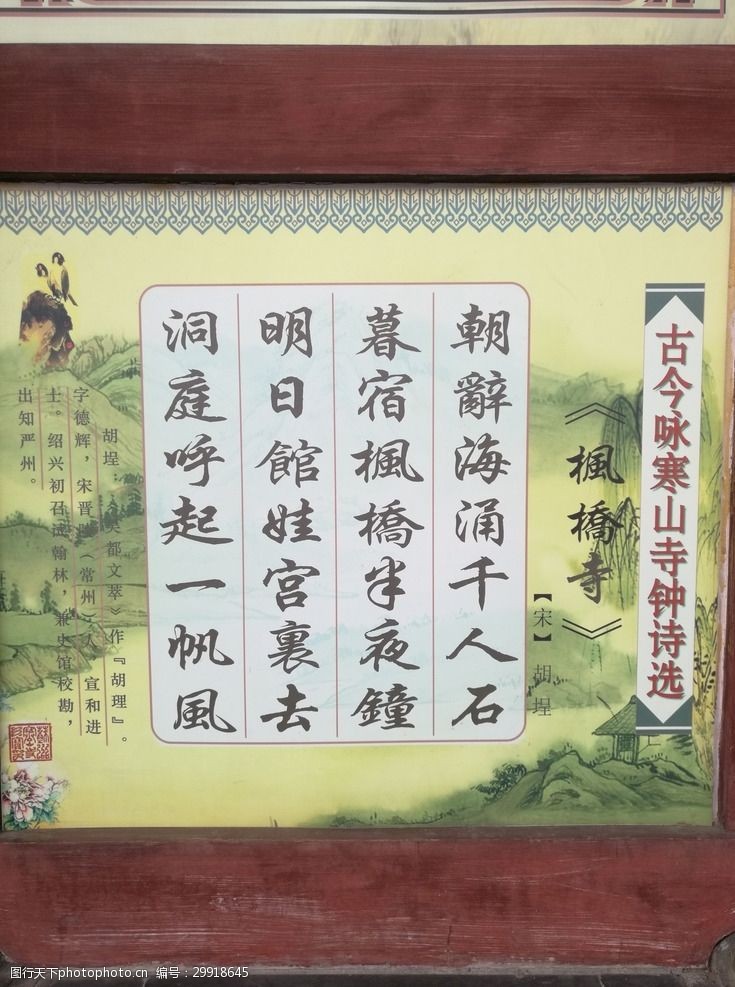 古今咏寒山寺钟诗选
《楓橋寺》
【宋】胡埕
朝辭海涌千人石
暮宿楓橋半夜鐘
明日館娃宮裏去
洞庭呼起一帆風
胡埕：《吴都文萃》作『胡理』。
字德辉，宋晋陵（常州）人，宣和进
士。绍兴初召试翰林，兼史馆校勘，
出知严州。
图行天下photophoto.cn 编号：29918645